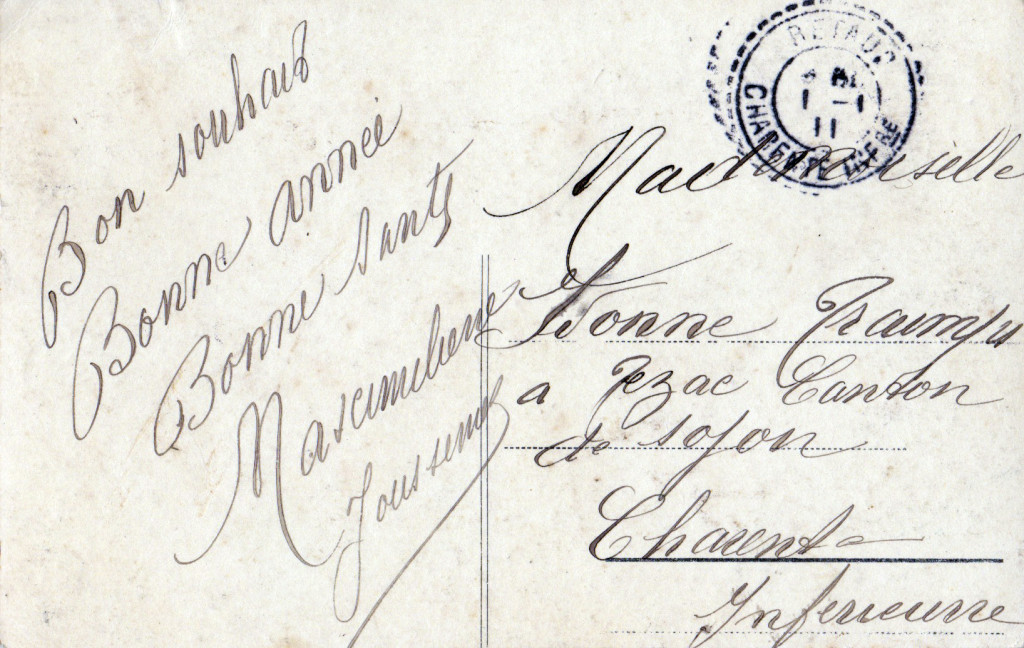 Bon souhait
Bonne année
Bonne santé
Jousseme
RETAUD
1 - 1
11
CHARENTE INFRE
Mademoiselle
Yvonne
a Jezac Canton
de sojon
Charente
Inferieurre